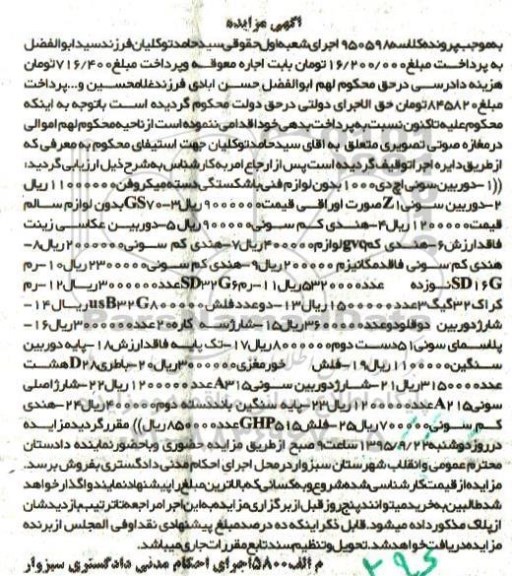 آگهی مزایده
به‌موجب پرونده کلاسه ۹۵۰۵۹۸ اجرای شعبه اول حقوقی سید حامد توکلیان فرزند سید ابوالفضل
به پرداخت مبلغ ۱۶/۲۰۰/۰۰۰ تومان بابت اجاره معوقه وپرداخت مبلغ ۷۱۶/۴۰۰ تومان
هزینه دادرسی درحق محکوم لهم ابوالفضل حسن ابادی فرزند غلامحسین و...پرداخت
مبلغ ۸۴۵۸۲۰ تومان حق الاجرای دولتی درحق دولت محکوم گردیده است باتوجه به اینکه
محکوم علیه تاکنون نسبت به پرداخت بدهی خود اقدامی ننموده است از ناحیه محکوم لهم اموالی
درمغازه صوتی تصویری متعلق به اقای سید حامد توکلیان جهت استیفای محکوم به معرفی که
از طریق دایره اجرا توقیف گردیده است پس از ارجاع امر به کارشناس به شرح ذیل ارزیابی گردید:
((۱-دوربین سونی اچ دی ۱۰۰۰ بدون لوازم فنی باشکستگی دسته میکروفن ۱۱۰۰۰۰۰۰ ریال
۲-دوربین سونی Z۱ صورت اوراقی قیمت ۹۰۰۰۰۰۰ ریال ۳-GS۷۰ بدون لوازم سالم
قیمت ۱۲۰۰۰۰۰ ریال ۴-هندی کم سونی ۹۰۰۰۰۰ ریال ۵-دوربین عکاسی زینت
فاقدارزش ۶-هندی کم gvq لوازم ۴۰۰۰۰۰ ریال ۷-هندی کم سونی ۲۰۰۰۰۰۰ ریال ۸-
هندی کم سونی فاقدمکانیزم ۲۰۰۰۰۰ ریال ۹-هندی کم سونی ۲۳۰۰۰۰۰ ریال ۱۰-رم
SD۱۶G نوزده عدد ۵۳۲۰۰۰۰ ریال ۱۱-رم SD۳۲G۶ عدد ۳۰۰۰۰۰۰ ریال ۱۲-رم
کراک ۳۲ گیگ ۳ عدد ۱۵۰۰۰۰۰ ریال ۱۳-دوعدد فلش usB۳۲G۸۰۰۰۰۰ ریال ۱۴-
شارژ دوربین دوقلو دوعدد ۳۶۰۰۰۰ ریال ۱۵-شارژ سه کاره ۲ عدد ۳۰۰۰۰۰ ریال ۱۶-
پلاسمای سونی ۵۱ دست دوم ۸۰۰۰۰۰۰ ریال ۱۷-تک پایه فاقدارزش ۱۸-پایه دوربین
سنگین ۱۱۰۰۰۰۰ ریال ۱۹-فلش خورمغزی ۳۰۰۰۰۰ ریال ۲۰-باطری D۲۸ هشت
عدد ۳۱۵۰۰۰۰ ریال ۲۱-شارژ دوربین سونی A۳۱۵ عدد ۱۲۰۰۰۰۰ ریال ۲۲-شارژ اصلی
سونی A۲۱۵ عدد ۱۲۰۰۰۰۰ ریال ۲۳-پایه سنگین باند دسته دوم ۲۰۰۰۰۰ ریال ۲۴-هندی
کم سونی ۷۰۰۰۰۰ ریال ۲۵-فلش GHP۵۱۵ عدد ۸۵۰۰۰۰ ریال)) مقرر گردید مزایده
درروز دوشنبه ۱۳۹۵/۶/۲۲ ساعت ۹ صبح از طریق مزایده حضوری وباحضور نماینده دادستان
محترم عمومی وانقلاب شهرستان سبزوار در محل اجرای احکام مدنی دادگستری بفروش برسد.
مزایده از قیمت کارشناسی شده شروع و به کسانی که بالاترین مبلغ را پیشنهاد نمایند واگذار خواهد
شد طالبین به خرید میتوانند پنج روز قبل از برگزاری مزایده به این اجرا مراجعه تا ترتیب بازدیدشان
از پلاک مذکور داده میشود. قابل ذکر اینکه ده درصد مبلغ پیشنهادی نقدا وفی المجلس از برنده
مزایده دریافت خواهد شد. تحویل و تنظیم سند تابع مقررات جاری میباشد.
م الف ۵۸۰۰ اجرای احکام مدنی دادگستری سبزوار